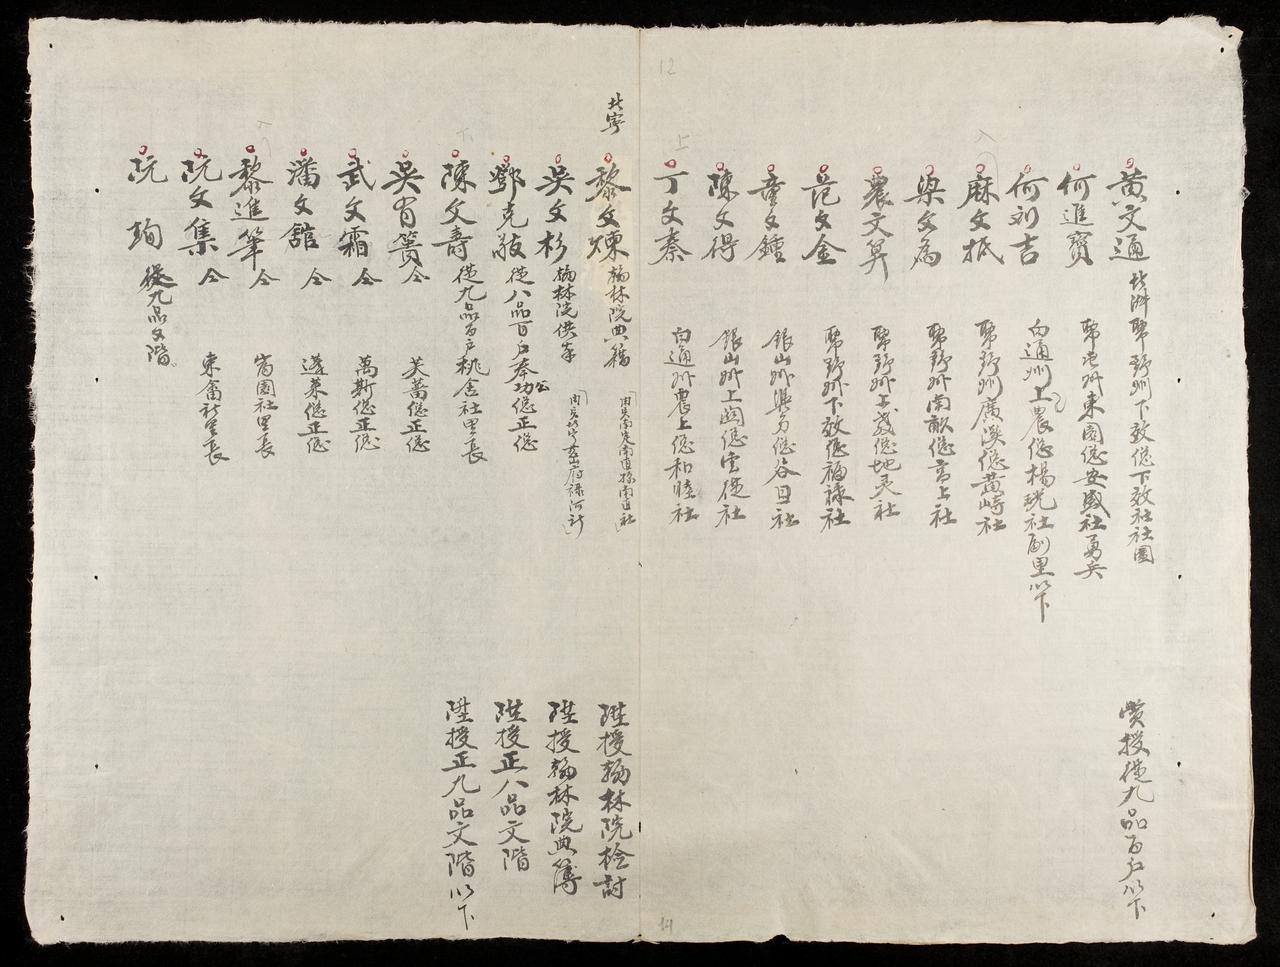 12
上
黄文通 北泮 弊野州下效總下效社社團
何進寳 東園總安盛社勇兵
何列吉 白通州上農總楊琬社副里以下
麻文抵 弊野州廣溪總黄崎社
梁文為 弊野州南畝總高上社
農文筭 弊野州上茂總地灵社
范文金 弊野州下效總福祿社
童文鍾 銀山州總谷社
陳文得 銀山州上閩總雲從社
丁文秦 白通州農上總和睦社
賞授從九品百戶以下
北寧
黎文煉 翰林院典籍
陞授翰林院檢討
吴文杉 翰林院供奉
陞授翰林院典簿
鄧克敍 從八品百戶奉公總正總
陞授正八品文階
陳文壽 從九品百戶桃舍社里長
陞授正九品文階以下
吴有簣 仝 芙蕾總正總
武文霜 仝 萬斯總正總
潘文舘 仝 蓬萊總正總
黎進筆 仝 富園社里長
阮文集 仝 東畬社里長
阮珣 從九品文階
14